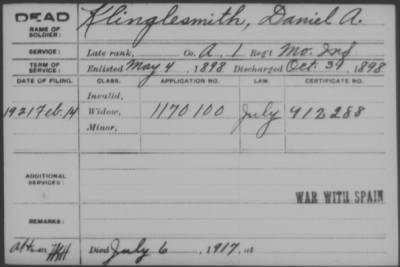 DEAD
NAME OF SOLDIER: Klinglesmith, Daniel A.
SERVICE: Late rank, Co. A, 1 Reg't Mo. Inf
TERM OF SERVICE: Enlisted May 4, 1898 Discharged Oct. 31, 1898
DATE OF FILING. CLASS. APPLICATION NO. LAW. CERTIFICATE NO.
Invalid,
1921 Feb. 14 Widow, 1170100 July 912288
Minor,
ADDITIONAL SERVICES:
WAR WITH SPAIN
REMARKS:
Died July 6, 1917, at